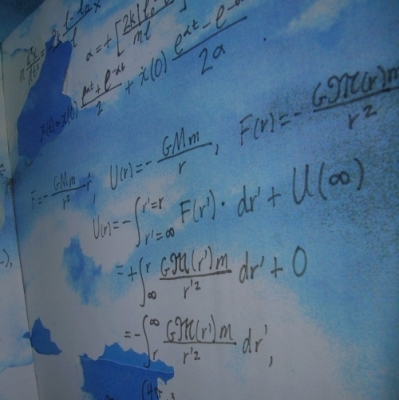 a = ± [2k
x(0) (e^{at} + e^{-at})/2 + ẋ(0) (e^{at} - e^{-a
2a
F = -GMm/r² r̂, U(r) = -GMm/r, F(r) = -G𝔐(r)m/r²
U(r) = -∫_{r'=∞}^{r'=r} F(r') · dr' + U(∞)
= +∫_∞^r G𝔐(r')m/r'² dr' + 0
= -∫_r^∞ G𝔐(r')m/r'² dr',